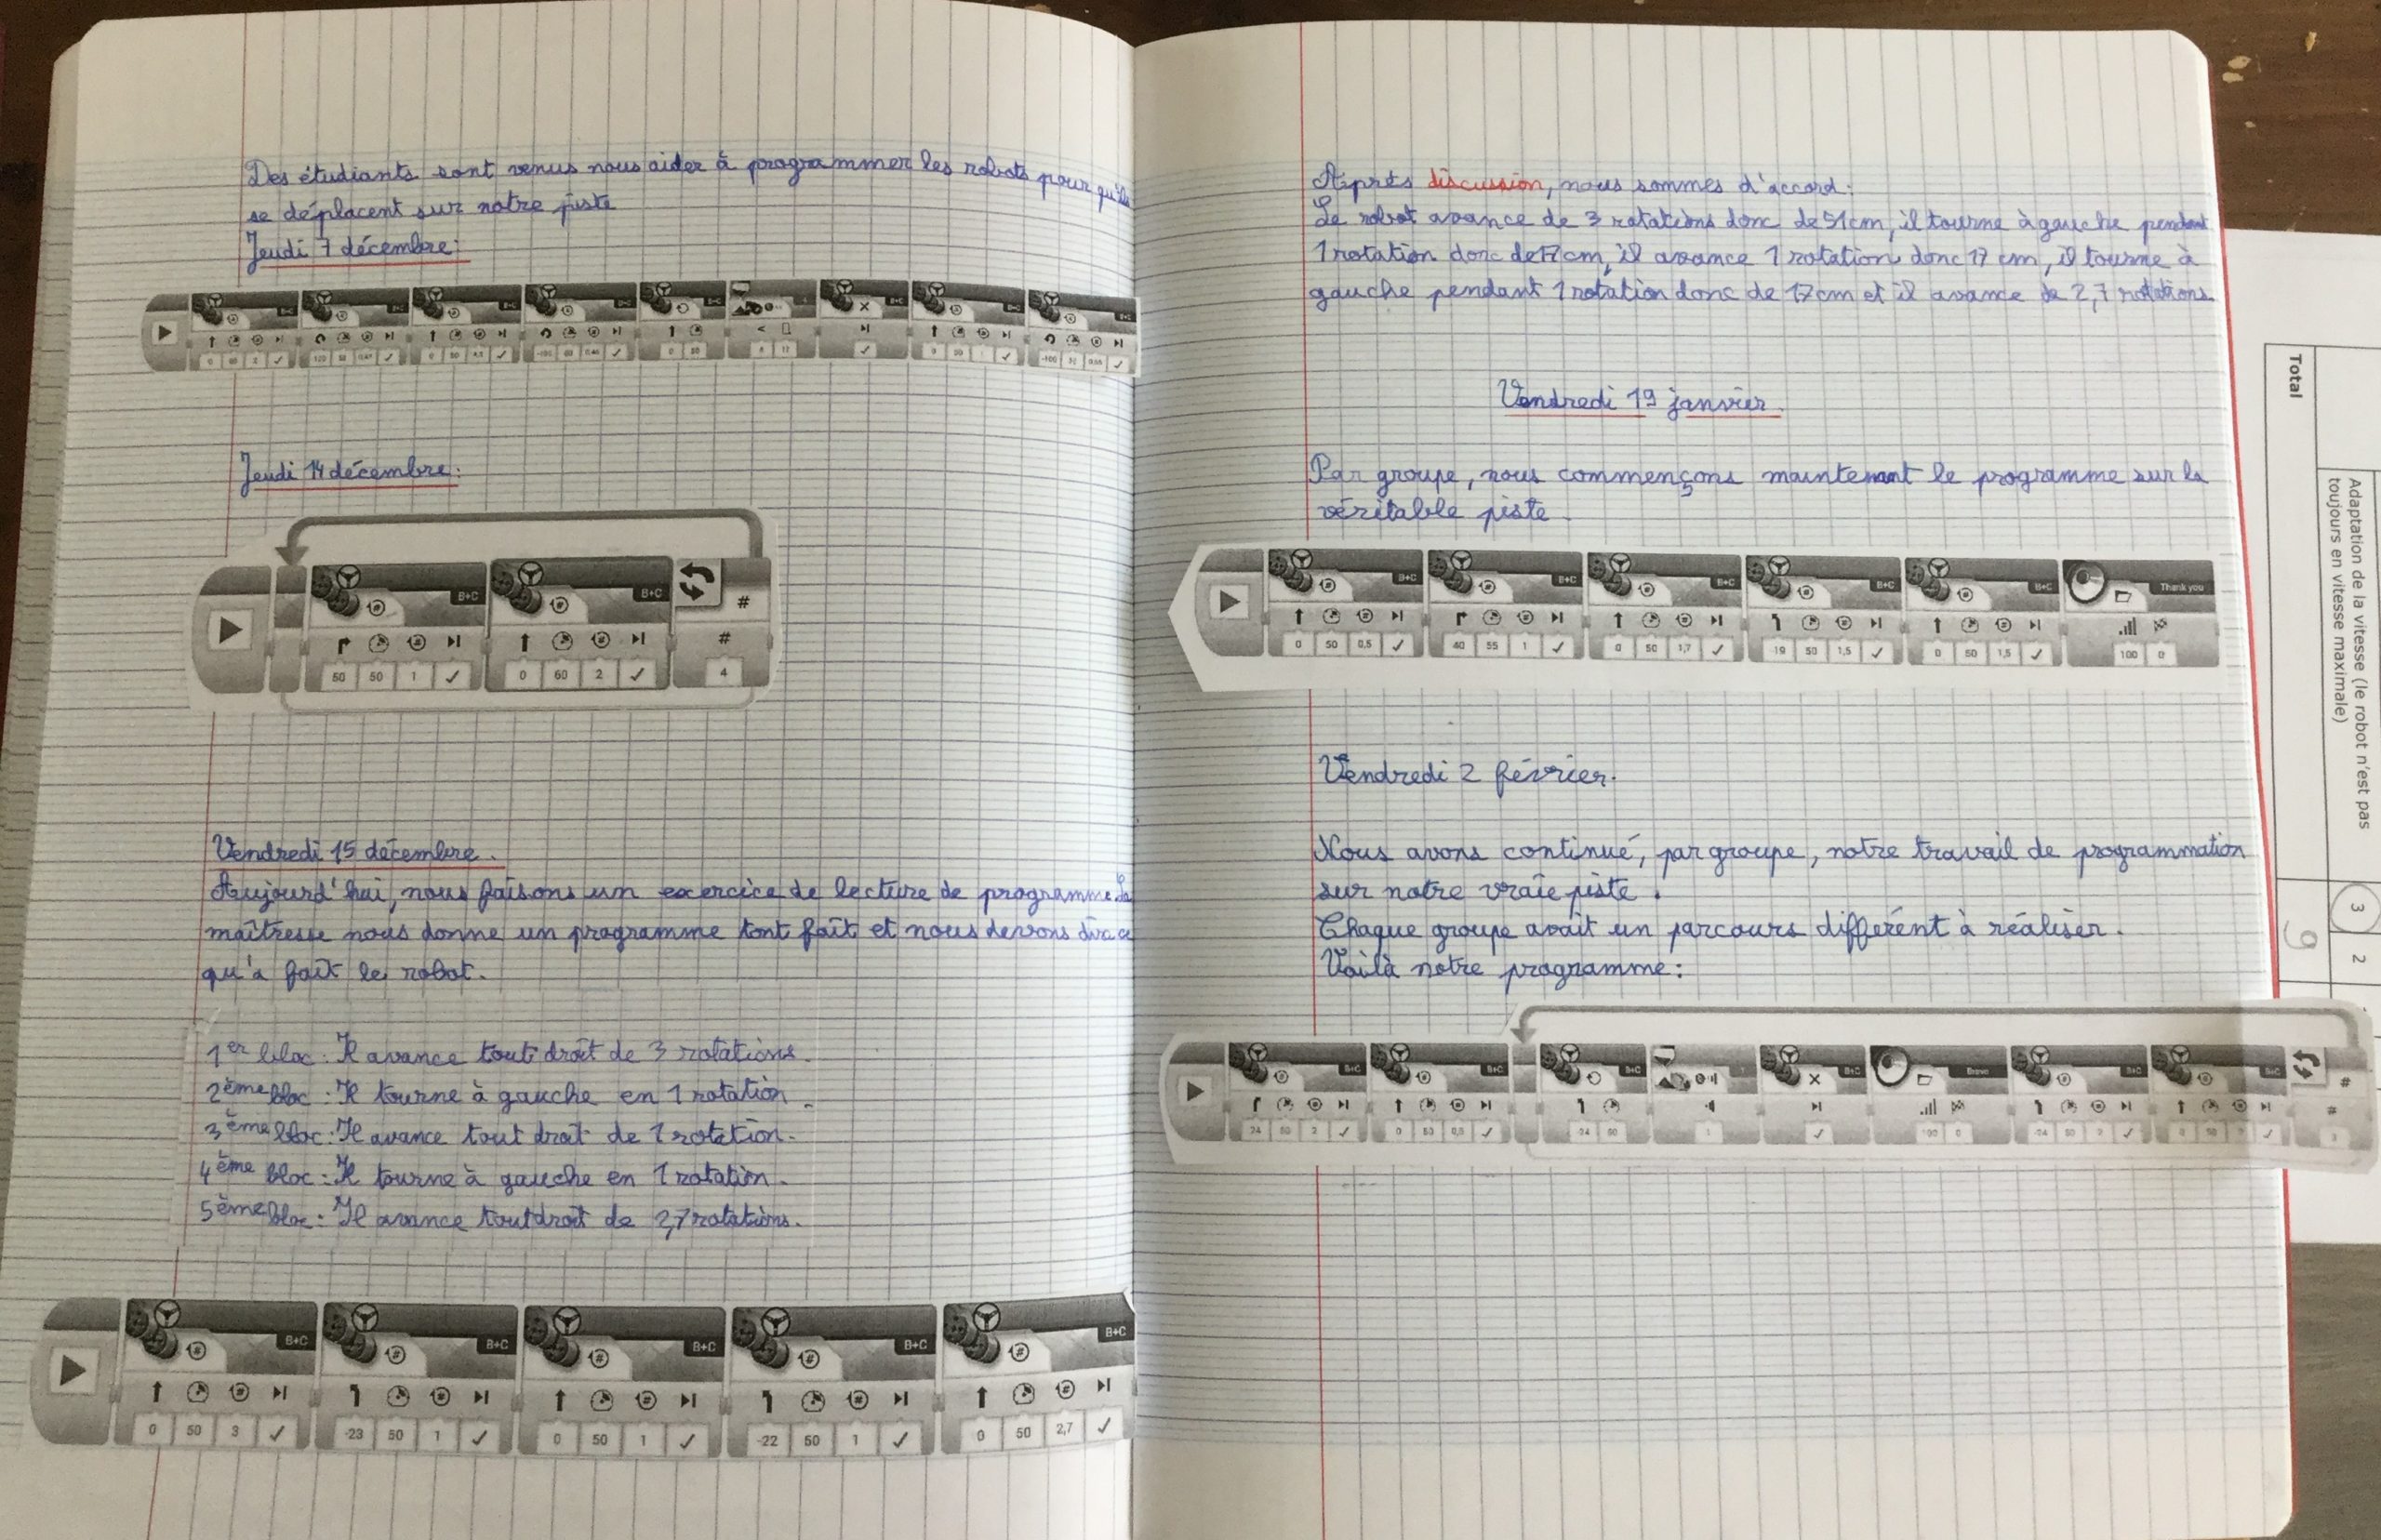 Des étudiants sont venus nous aider à programmer les robots pour qu'ils
se déplacent sur notre piste
Jeudi 7 décembre:
Jeudi 14 décembre:
B+C
B+C
#
#
50 50 1
0 60 2
4
Vendredi 15 décembre.
Aujourd'hui, nous faisons un exercice de lecture de programme. La
maîtresse nous donne un programme tout fait et nous devons dire ce
qu'a fait le robot.
1er bloc: Il avance tout droit de 3 rotations.
2ème bloc: Il tourne à gauche en 1 rotation.
3ème bloc: Il avance tout droit de 1 rotation.
4ème bloc: Il tourne à gauche en 1 rotation.
5ème bloc: Il avance tout droit de 2,7 rotations.
B+C
B+C
B+C
B+C
B+C
0 50 3
-23 50 1
0 50 1
-22 50 1
0 50 2,7
Après discussion, nous sommes d'accord:
Le robot avance de 3 rotations donc de 51cm, il tourne à gauche pendant
1 rotation donc de 17 cm, il avance 1 rotation donc 17 cm, il tourne à
gauche pendant 1 rotation donc de 17cm et il avance de 2,7 rotations
Vendredi 19 janvier.
Par groupe, nous commençons maintenant le programme sur la
véritable piste.
B+C
B+C
B+C
B+C
B+C
Thank you
0 50 0,5
40 55 1
0 50 1,7
-19 50 1,5
0 50 1,5
100 0
Vendredi 2 février.
Nous avons continué, par groupe, notre travail de programmation
sur notre vraie piste.
Chaque groupe avait un parcours différent à réaliser.
Voilà notre programme:
B+C
B+C
B+C
B+C
Bravo
B+C
B+C
#
#
Total
Adaptation de la vitesse (le robot n'est pas
toujours en vitesse maximale)
3
2
9